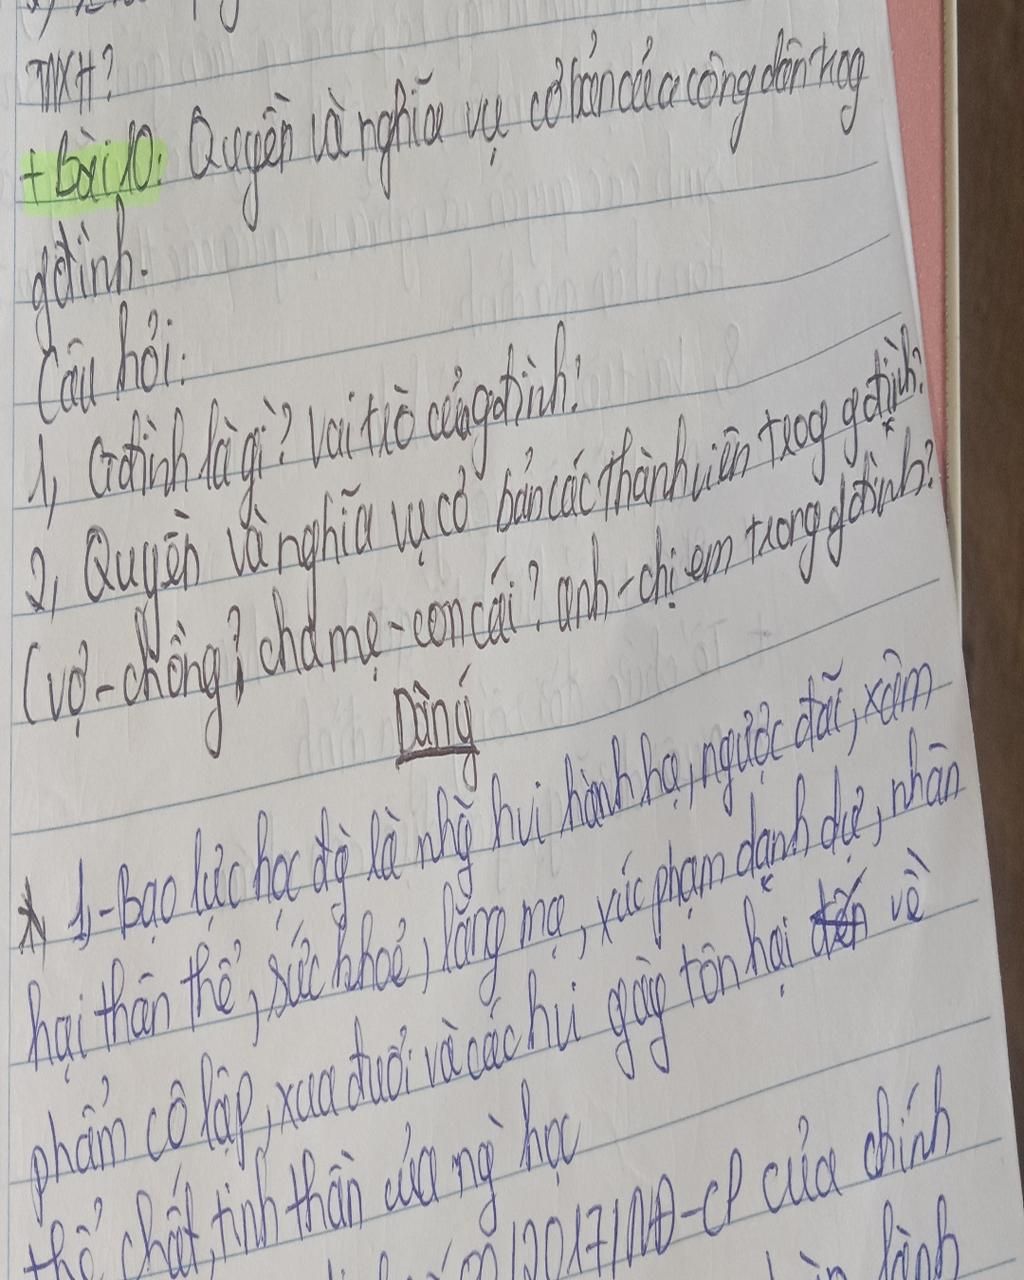 TNXH?
+ Bài 10: Quyền và nghĩa vụ cơ bản của công dân trog
gđình.
Câu hỏi:
1, Gđình là gì? Vai trò của gđình?
2, Quyền và nghĩa vụ cơ bản các thành viên trog gđình?
(vợ-chồng? cha mẹ-con cái? anh-chị em trong gđình?
Dàn ý
* 1, - Bạo lực học đg là nhg hvi hành hạ, ngược đãi, xâm
hại thân thể, sức khoẻ, lăng mạ, xúc phạm danh dự, nhân
phẩm cô lập, xua đuổi và các hvi gây tổn hại về
thể chất, tinh thần của ng học
/2017/NĐ-CP của chính
lành